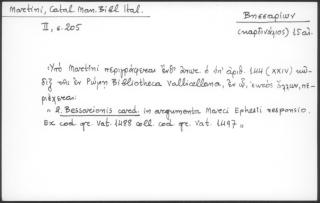 Martini, Catal. Man. Bibl. Ital.
II, σ. 205
Βησσαρίων
(καρδινάλιος) 15 αἰ.
Ὑπὸ Martini περιγράφεται ἐνθ' ἀνωτ. ὁ ὑπ' ἀριθ. 144 (XXIV) κῶ-
διξ τῆς ἐν Ρώμῃ Bibliotheca Vallicellana, ἐν ᾧ, ἐκτὸς ἄλλων, πε-
ριέχεται:
" 2. Bessarionis card. in argumenta Marci Ephesii responsio.
Ex cod. gr. Vat. 1488 coll. cod. gr. Vat. 1497 "